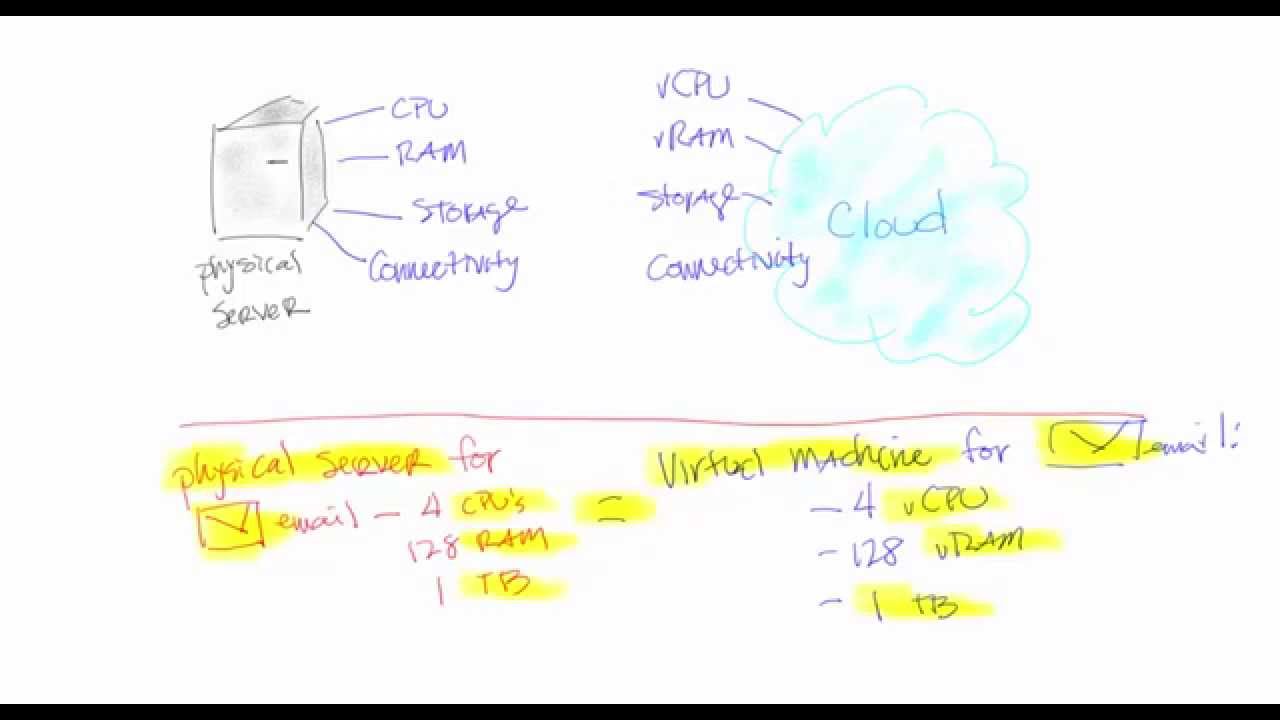 CPU
RAM
STORAGE
Connectivity
physical
SERVER
vCPU
vRAM
STORAGE
Connectivity
Cloud
physical SERVER for
email - 4 CPU's
128 RAM
1 TB
=
Virtual MACHINE for email:
- 4 vCPU
- 128 vRAM
- 1 TB